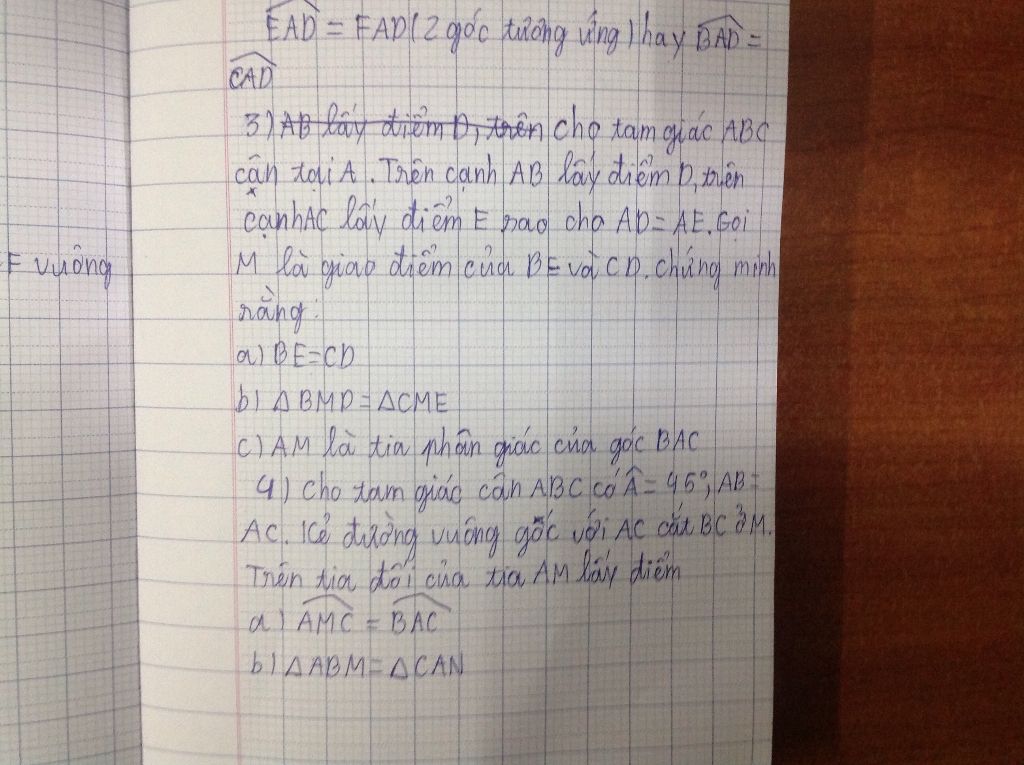 EAD = FAD (2 góc tương ứng) hay BAD =
CAD
3) AB lấy điểm D, trên cho tam giác ABC
cận tại A. Trên cạnh AB lấy điểm D, trên
cạnh AC lấy điểm E sao cho AD = AE. Gọi
F vuông
M là giao điểm của BE và CD. chứng minh
rằng:
a) BE = CD
b) ΔBMD = ΔCME
c) AM là tia phân giác của góc BAC
4) Cho tam giác cân ABC có Â = 45°, AB =
AC. Kẻ đường vuông góc với AC cắt BC ở M.
Trên tia đối của tia AM lấy điểm
a) AMC = BAC
b) ΔABM = ΔCAN